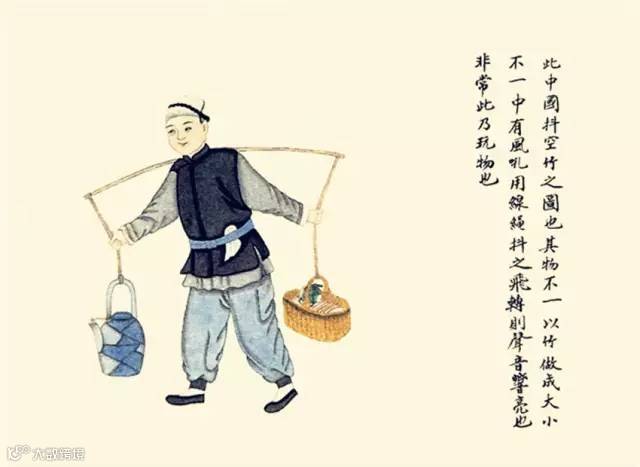 此中國抖空竹之圖也其物不一以竹做成大小
不一中有風吼用線繩抖之飛轉則聲音響亮也
非常此乃玩物也
大数跨境